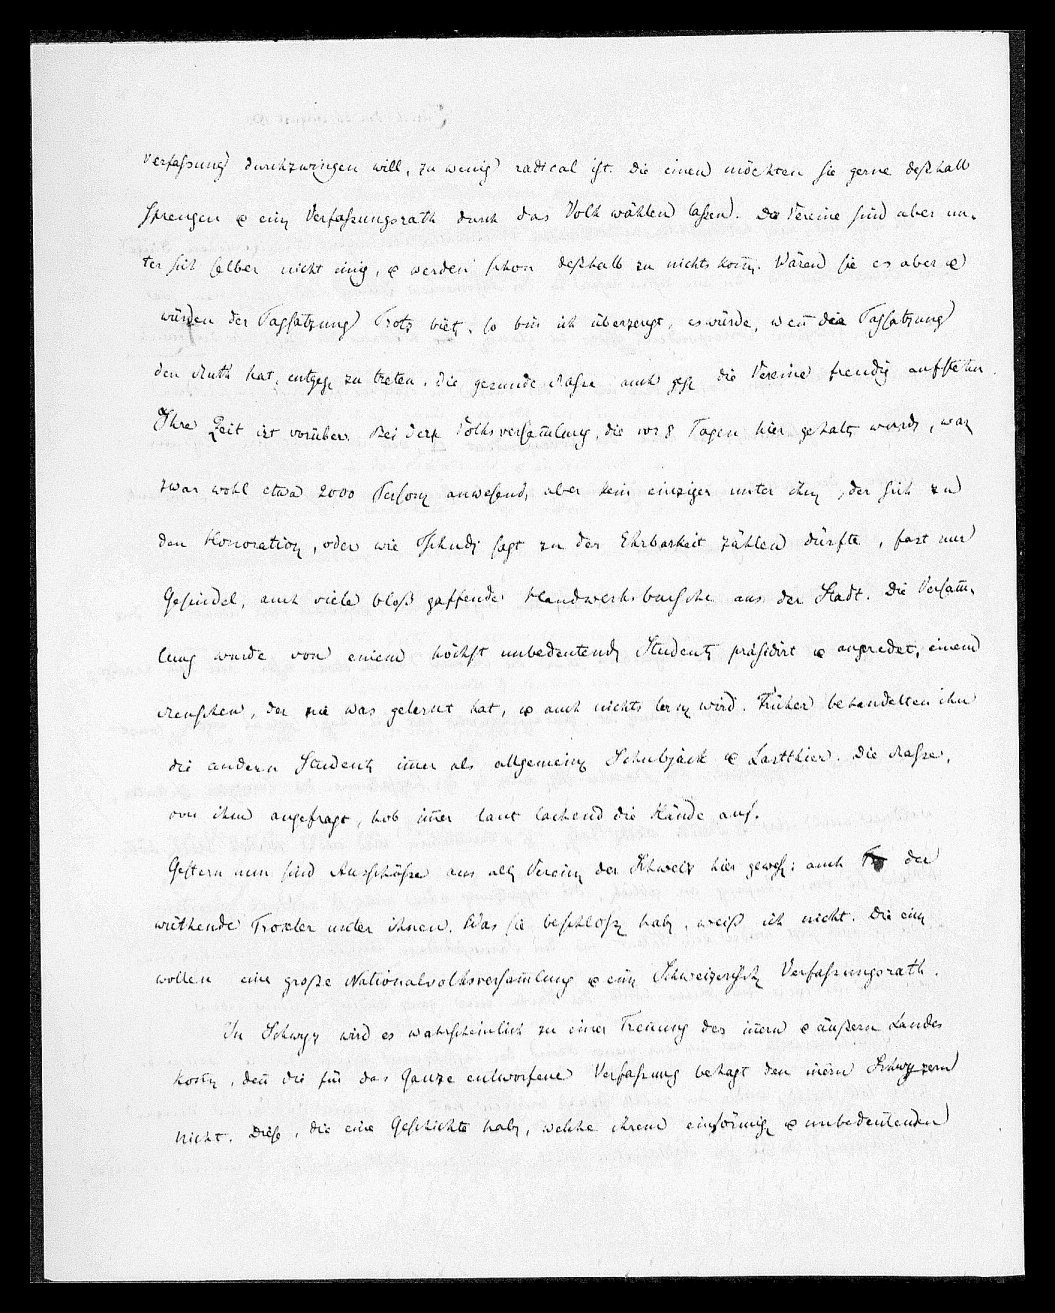 Verfaßung durchzwingen will, zu wenig radical ist. Die einen möchten sie gerne deßhalb
sprengen & einen Verfaßungsrath durch das Volk wählen laßen. Die Vereine sind aber un-
ter sich selber nicht einig, & werden schon deßhalb zu nichts kom̄en. Wären sie es aber &
würden der Tagsatzung Trotz bieten, so bin ich überzeugt, es würde, wen̄ die Tagsatzung
den Muth hat, entgegen zu treten, die gesunde Maße auch gegen die Vereine freudig aufstehn.
Ihre Zeit ist vorüber. Bei der Volksversam̄lung, die vor 8 Tagen hier gehalten wurde, waren
zwar wohl etwa 2000 Personen anwesend, aber kein einziger unter ihnen, der sich zu
den Honoratioren, oder wie Tschudi sagt zu der Ehrbarkeit zählen dürfte, fast nur
Gesindel, auch viele bloß gaffende Handwerksbursche aus der Stadt. Die Versam̄-
lung wurde von einem höchst unbedeutenden Studenten präsidirt & angeredet, einem
Menschen, der nie was gelernt hat, & auch nichts lernen wird. Früher behandelten ihn
die andern Studenten im̄er als allgemeinen Schubjack & Lastthier. Die Maße,
von ihm angefragt, hob im̄er laut lachend die Hände auf.
Gestern nun sind Ausschüße aus allen Vereinen der Schweiz hier gewesen: auch der
wüthende Troxler unter ihnen. Was sie beschloßen haben, weiß ich nicht. Die einen
wollen eine große Nationalvolksversam̄lung & einen Schweizerischen Verfaßungsrath.
In Schwyz wird es wahrscheinlich zu einer Trennung des in̄ern & äußern Landes
kom̄en, den̄ die für das Ganze entworfene Verfaßung behagt den in̄ern Schwyzern
nicht. Diese, die eine Geschichte haben, welche ihrem einförmigen & unbedeutenden